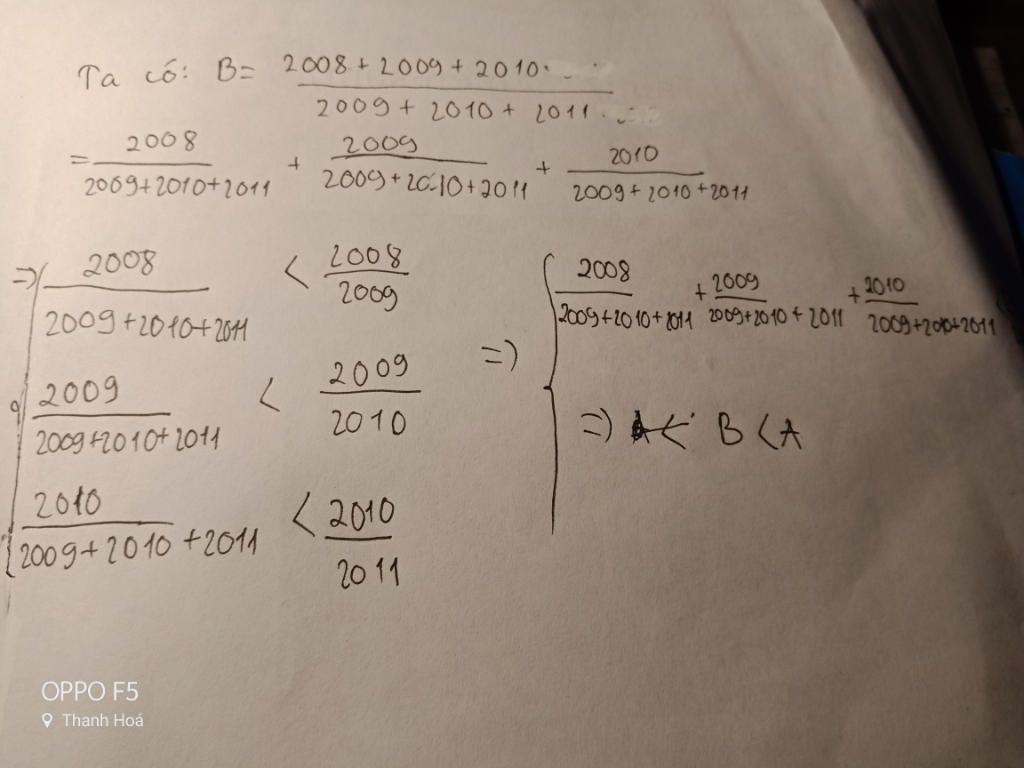 Ta có: B = 2008 + 2009 + 2010
2009 + 2010 + 2011
= 2008 / 2009+2010+2011 + 2009 / 2009+2010+2011 + 2010 / 2009+2010+2011
=> 2008 / 2009+2010+2011 < 2008 / 2009
2009 / 2009+2010+2011 < 2009 / 2010
2010 / 2009+2010+2011 < 2010 / 2011
=> 2008 / 2009+2010+2011 + 2009 / 2009+2010+2011 + 2010 / 2009+2010+2011
=> B < A
OPPO F5
Thanh Hoá